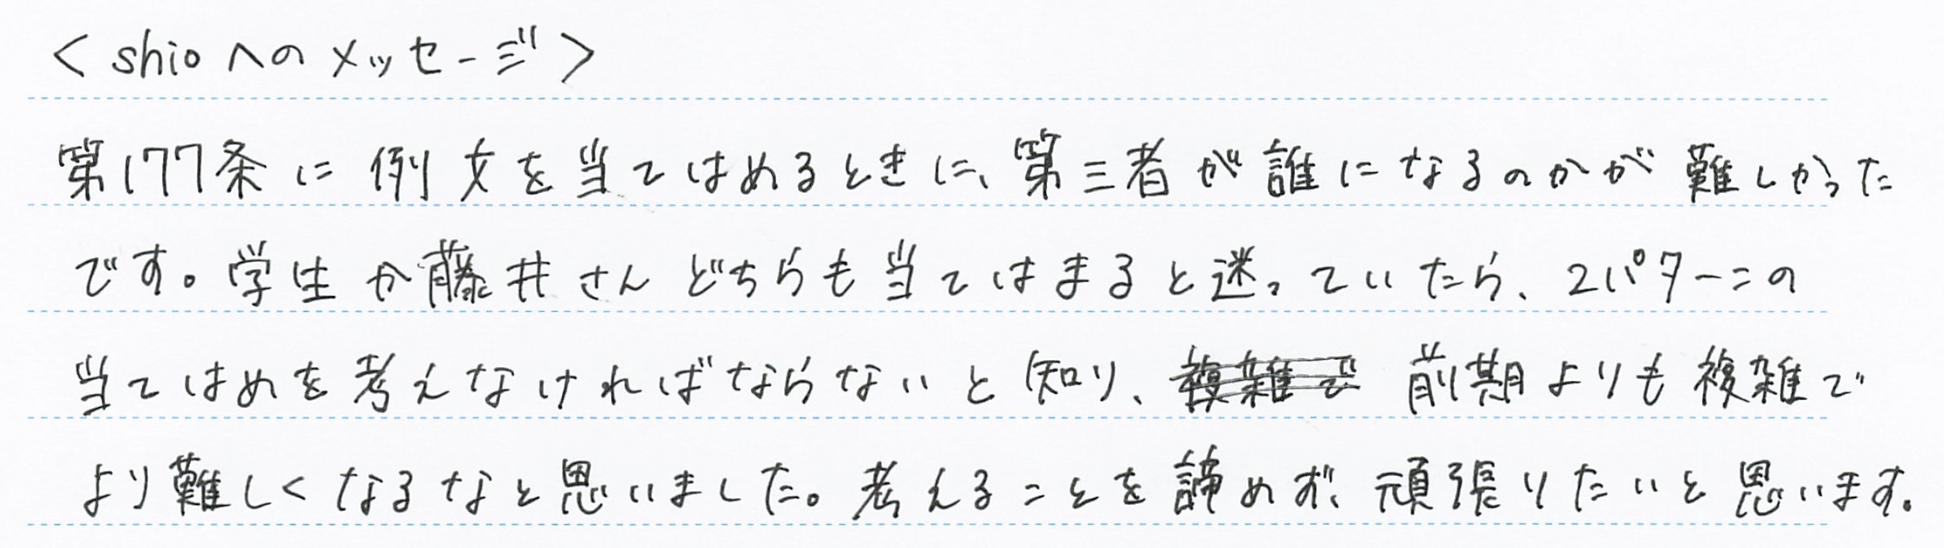 <shioへのメッセージ>
第177条に例文を当てはめるときに、第三者が誰になるのかが難しかった
です。学生か藤井さんどちらも当てはまると迷っていたら、2パターンの
当てはめを考えなければならないと知り、複雑で 前期よりも複雑で
より難しくなるなと思いました。考えることを諦めず、頑張りたいと思います。